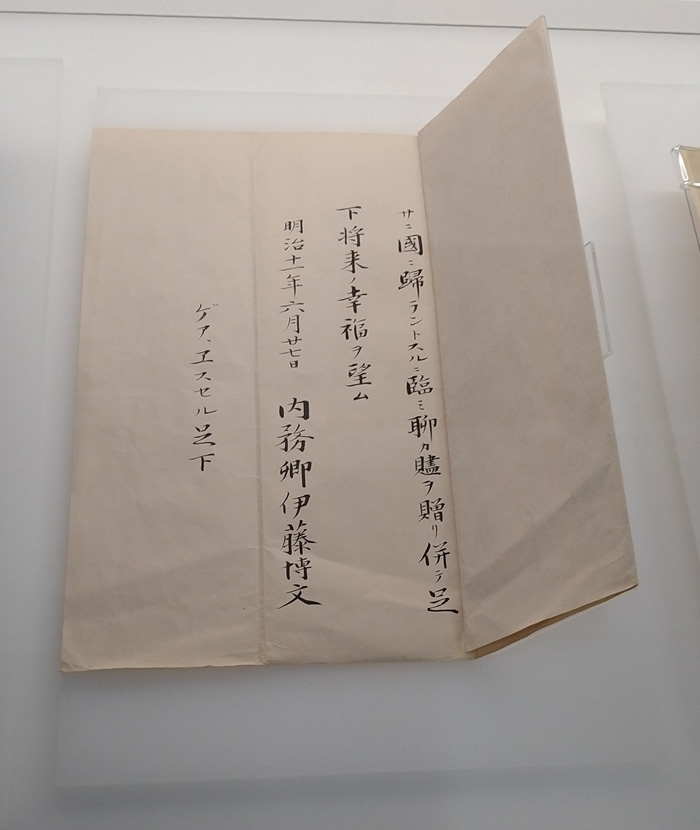 サニ國ニ歸ラントスルニ臨ミ聊カ贐ヲ贈リ併テ足
下将来ノ幸福ヲ望ム
明治十一年六月廿七日 内務卿伊藤博文
ゲア、ヱスセル足下